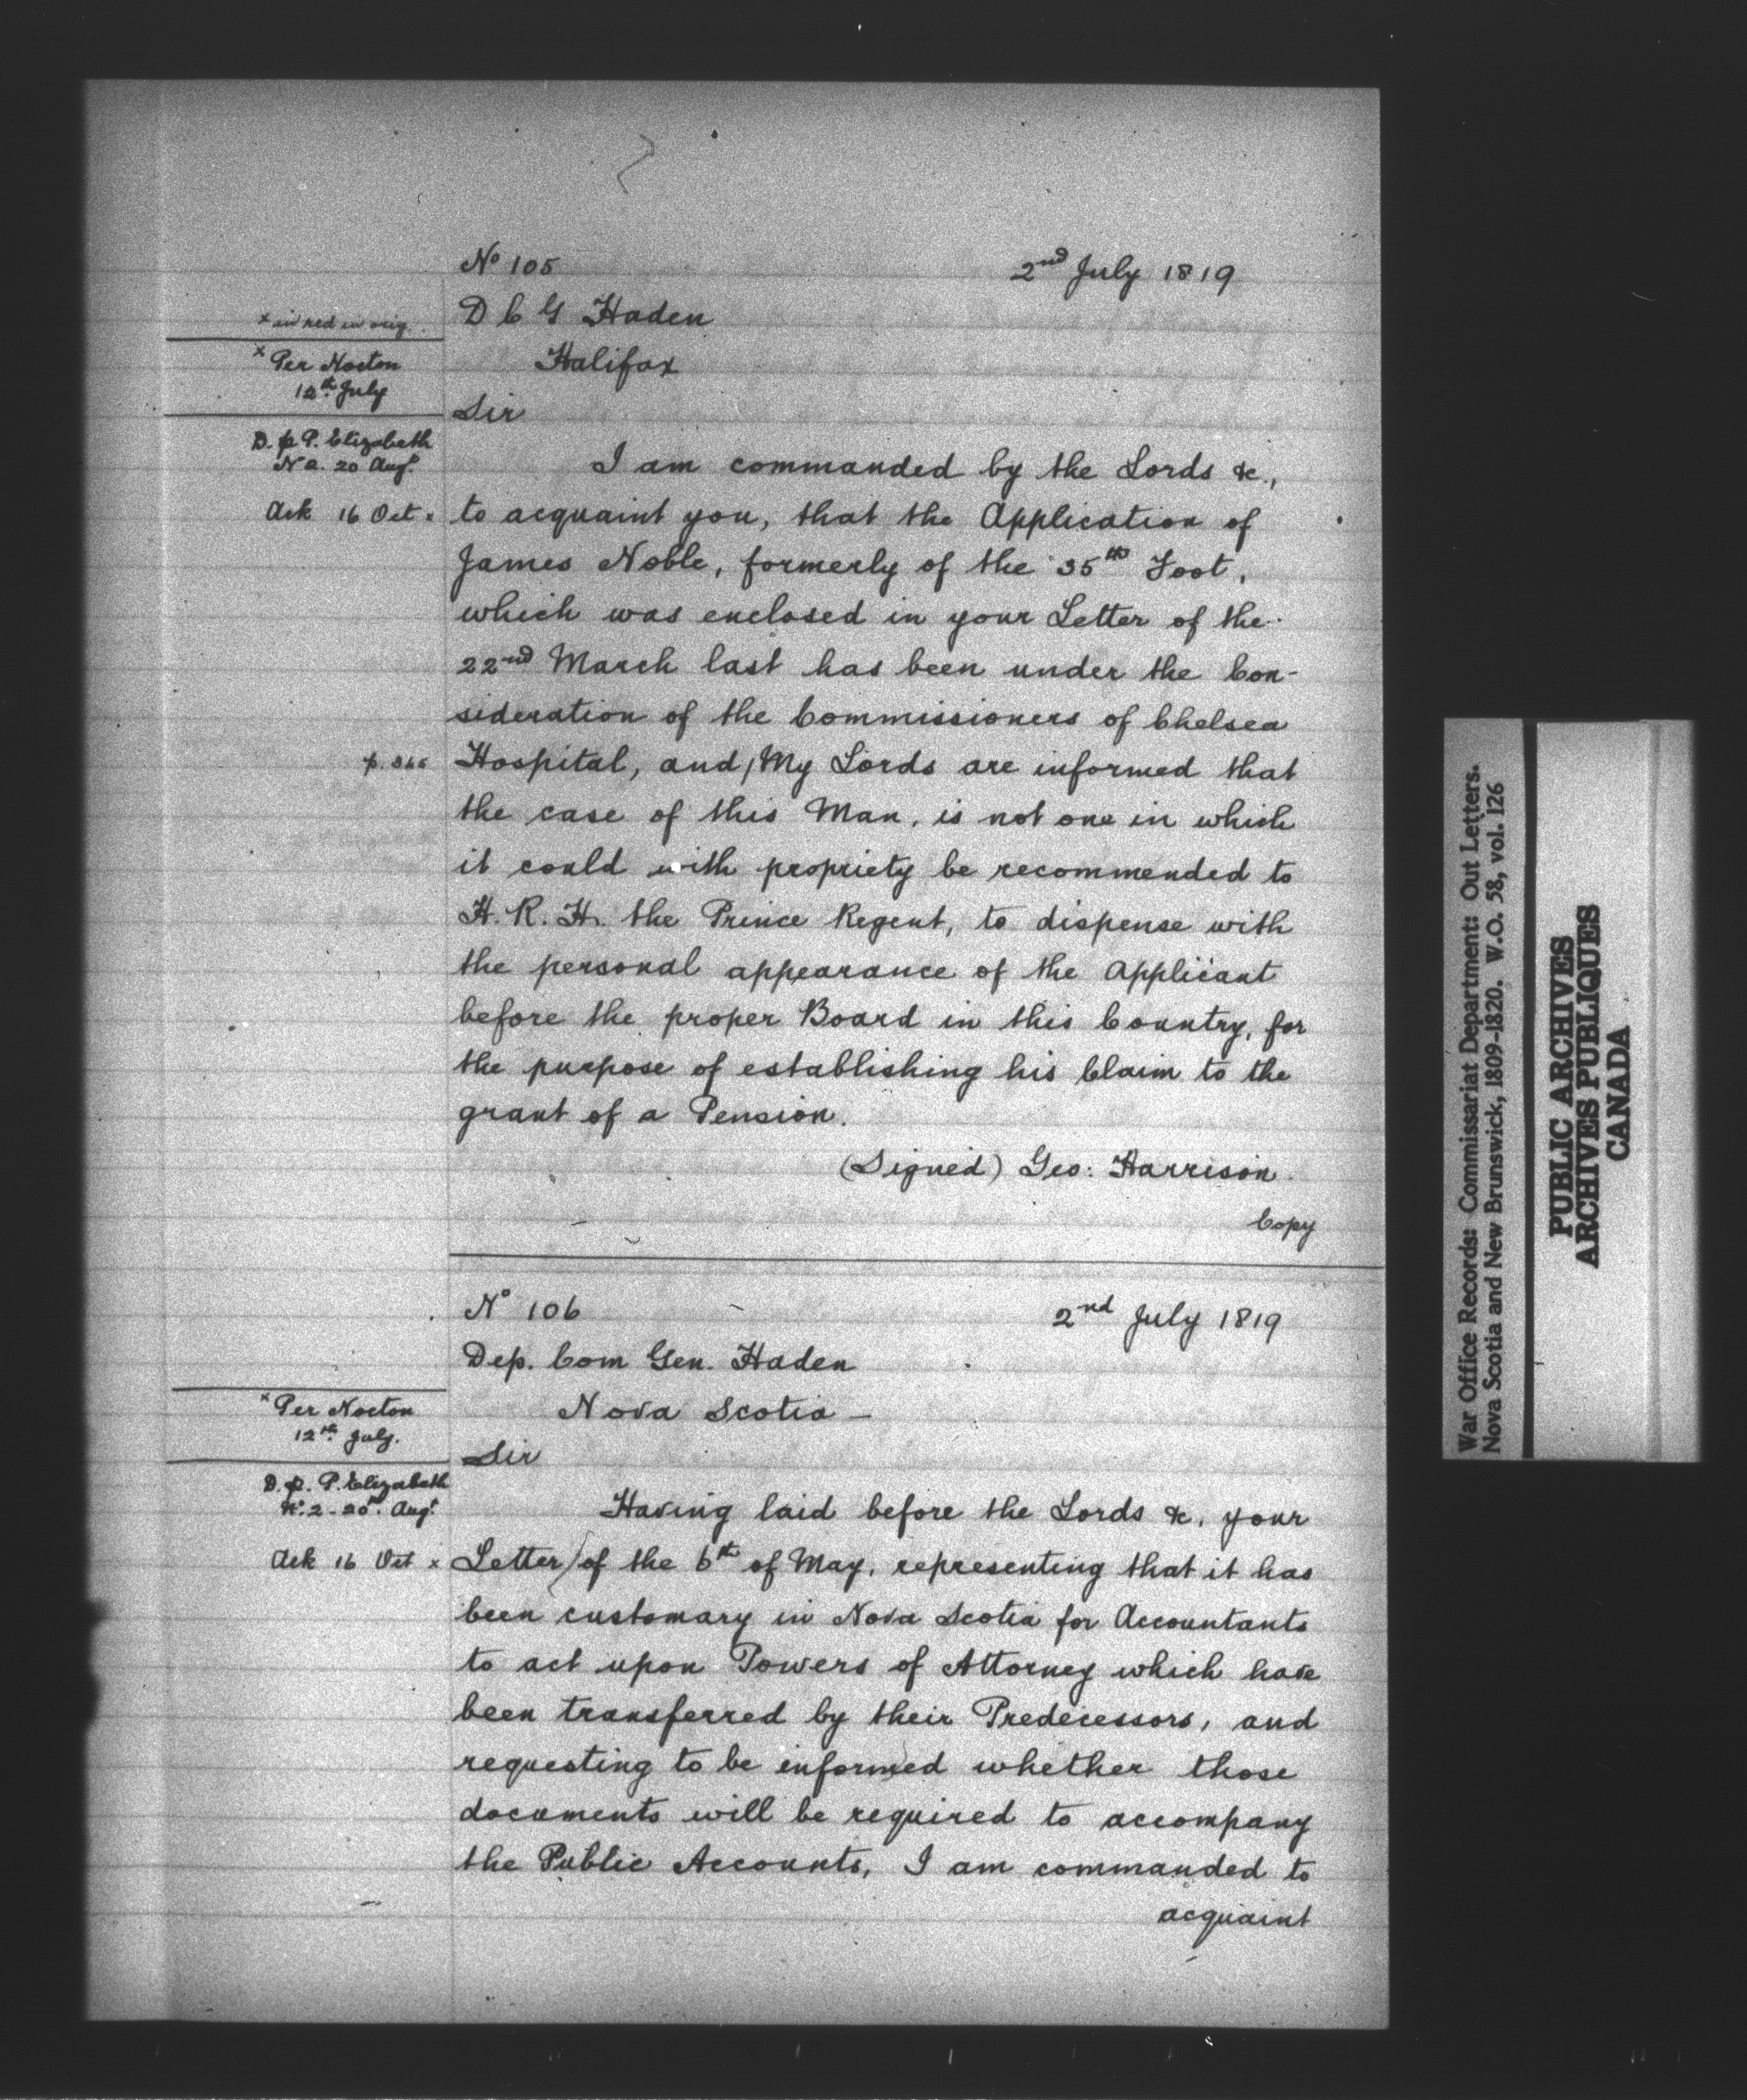 No 105
2nd July 1819
x in red in orig.
D C G Haden
x Per Norton
12th July
Halifax
Sir
D. p P. Elizabeth
No 2. 20 Augt
I am commanded by the Lords &c.,
Ack 16 Oct x
to acquaint you, that the Application of
James Noble, formerly of the 35th Foot,
which was enclosed in your Letter of the
22nd March last has been under the Con-
sideration of the Commissioners of Chelsea
Hospital, and, My Lords are informed that
the case of this Man, is not one in which
it could with propriety be recommended to
H. R. H. the Prince Regent, to dispense with
the personal appearance of the applicant
before the proper Board in this Country, for
the purpose of establishing his Claim to the
grant of a Pension.
(Signed) Geo: Harrison
Copy
No 106
2nd July 1819
Dep. Com Gen. Haden
x Per Norton
12th July.
Nova Scotia —
Sir
D. p. P. Elizabeth
No. 2 - 20th. Augt.
Having laid before the Lords &c, your
Ack 16 Oct x
Letter of the 6th of May, representing that it has
been customary in Nova Scotia for Accountants
to act upon Powers of Attorney which have
been transferred by their Predecessors, and
requesting to be informed whether those
documents will be required to accompany
the Public Accounts, I am commanded to
acquaint
War Office Records: Commissariat Department: Out Letters.
Nova Scotia and New Brunswick, 1809-1820. W.O. 58, vol. 126
PUBLIC ARCHIVES
ARCHIVES PUBLIQUES
CANADA